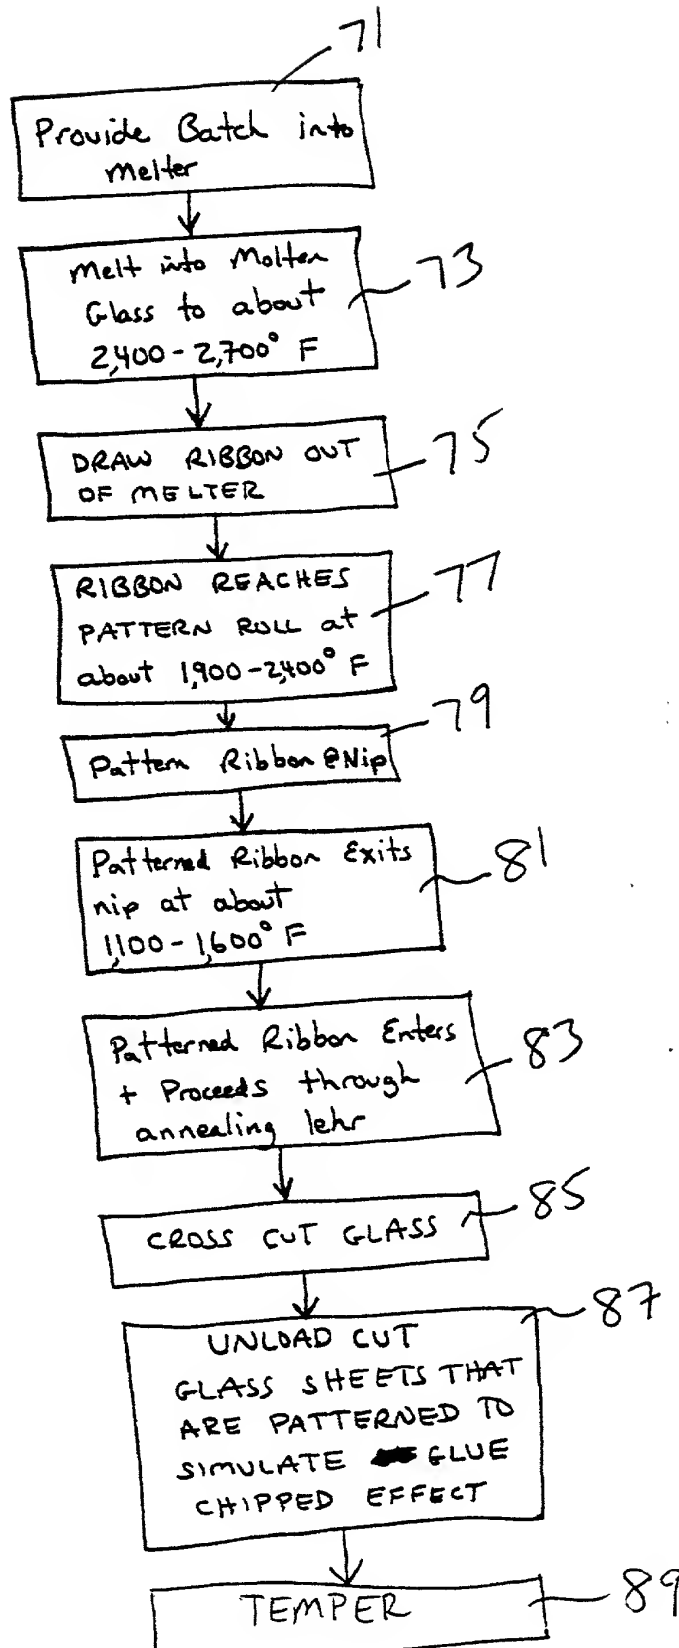 71
Provide Batch into
Melter
Melt into Molten
Glass to about
2,400-2,700° F
73
DRAW RIBBON OUT
OF MELTER
75
RIBBON REACHES
PATTERN ROLL at
about 1,900-2,400° F
77
79
Pattern Ribbon @Nip
Patterned Ribbon Exits
nip at about
1,100-1,600° F
81
Patterned Ribbon Enters
+ Proceeds through
annealing lehr
83
CROSS CUT GLASS
85
87
UNLOAD CUT
GLASS SHEETS THAT
ARE PATTERNED TO
SIMULATE GLUE
CHIPPED EFFECT
TEMPER
89